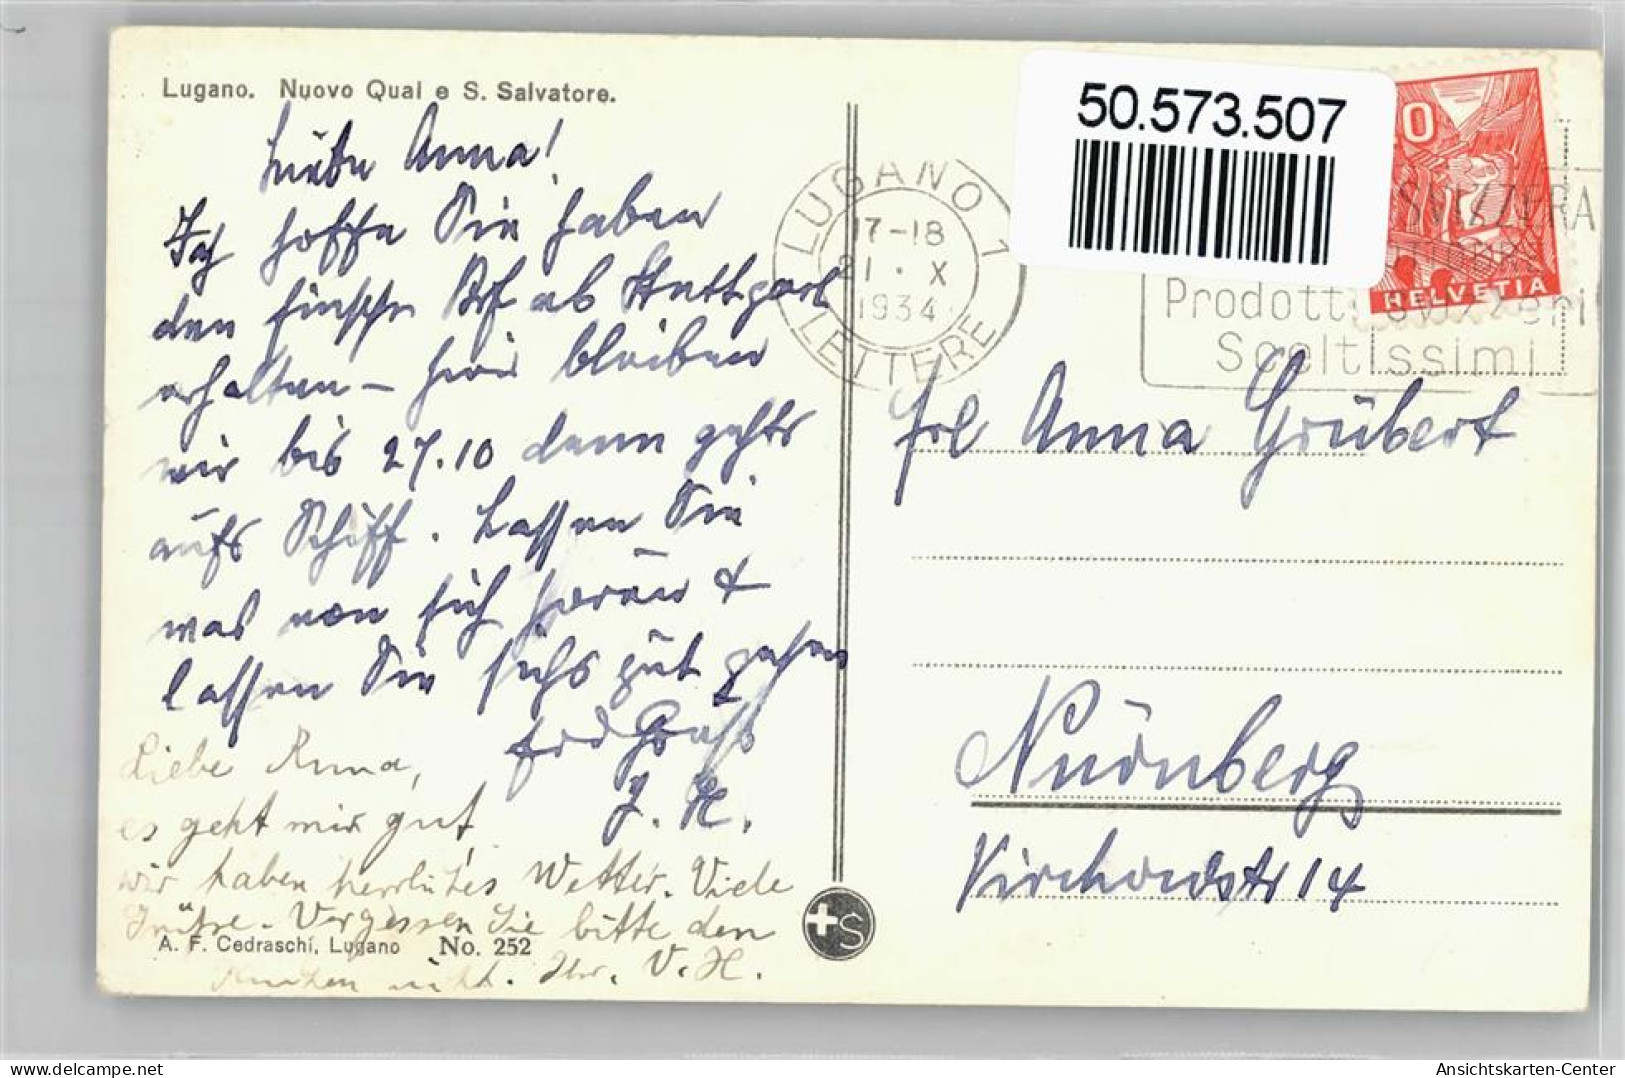 Lugano. Nuovo Quai e S. Salvatore.
Liebe Anna!
Ich hoffe Sie haben
den Einschr Brf ab Stuttgart
erhalten – hier bleiben
wir bis 27.10 dann gehts
aufs Schiff. Lassen Sie
was von sich hören &
lassen Sie sichs gut gehen
Gruß
J. H.
Liebe Anna,
es geht mir gut,
wir haben herrliches Wetter. Viele
Grüsse. Vergessen Sie bitte den
Kuchen nicht. Ihr. V. H.
A. F. Cedraschi, Lugano No. 252
+S
LUGANO 1
17-18
21 · X
1934
LETTERE
50.573.507
0
HELVETIA
SVIZZERA
Prodotti svizzeri
Sceltissimi
Frl Anna Grübert
Nürnberg
14
Ansichtskarten-Center